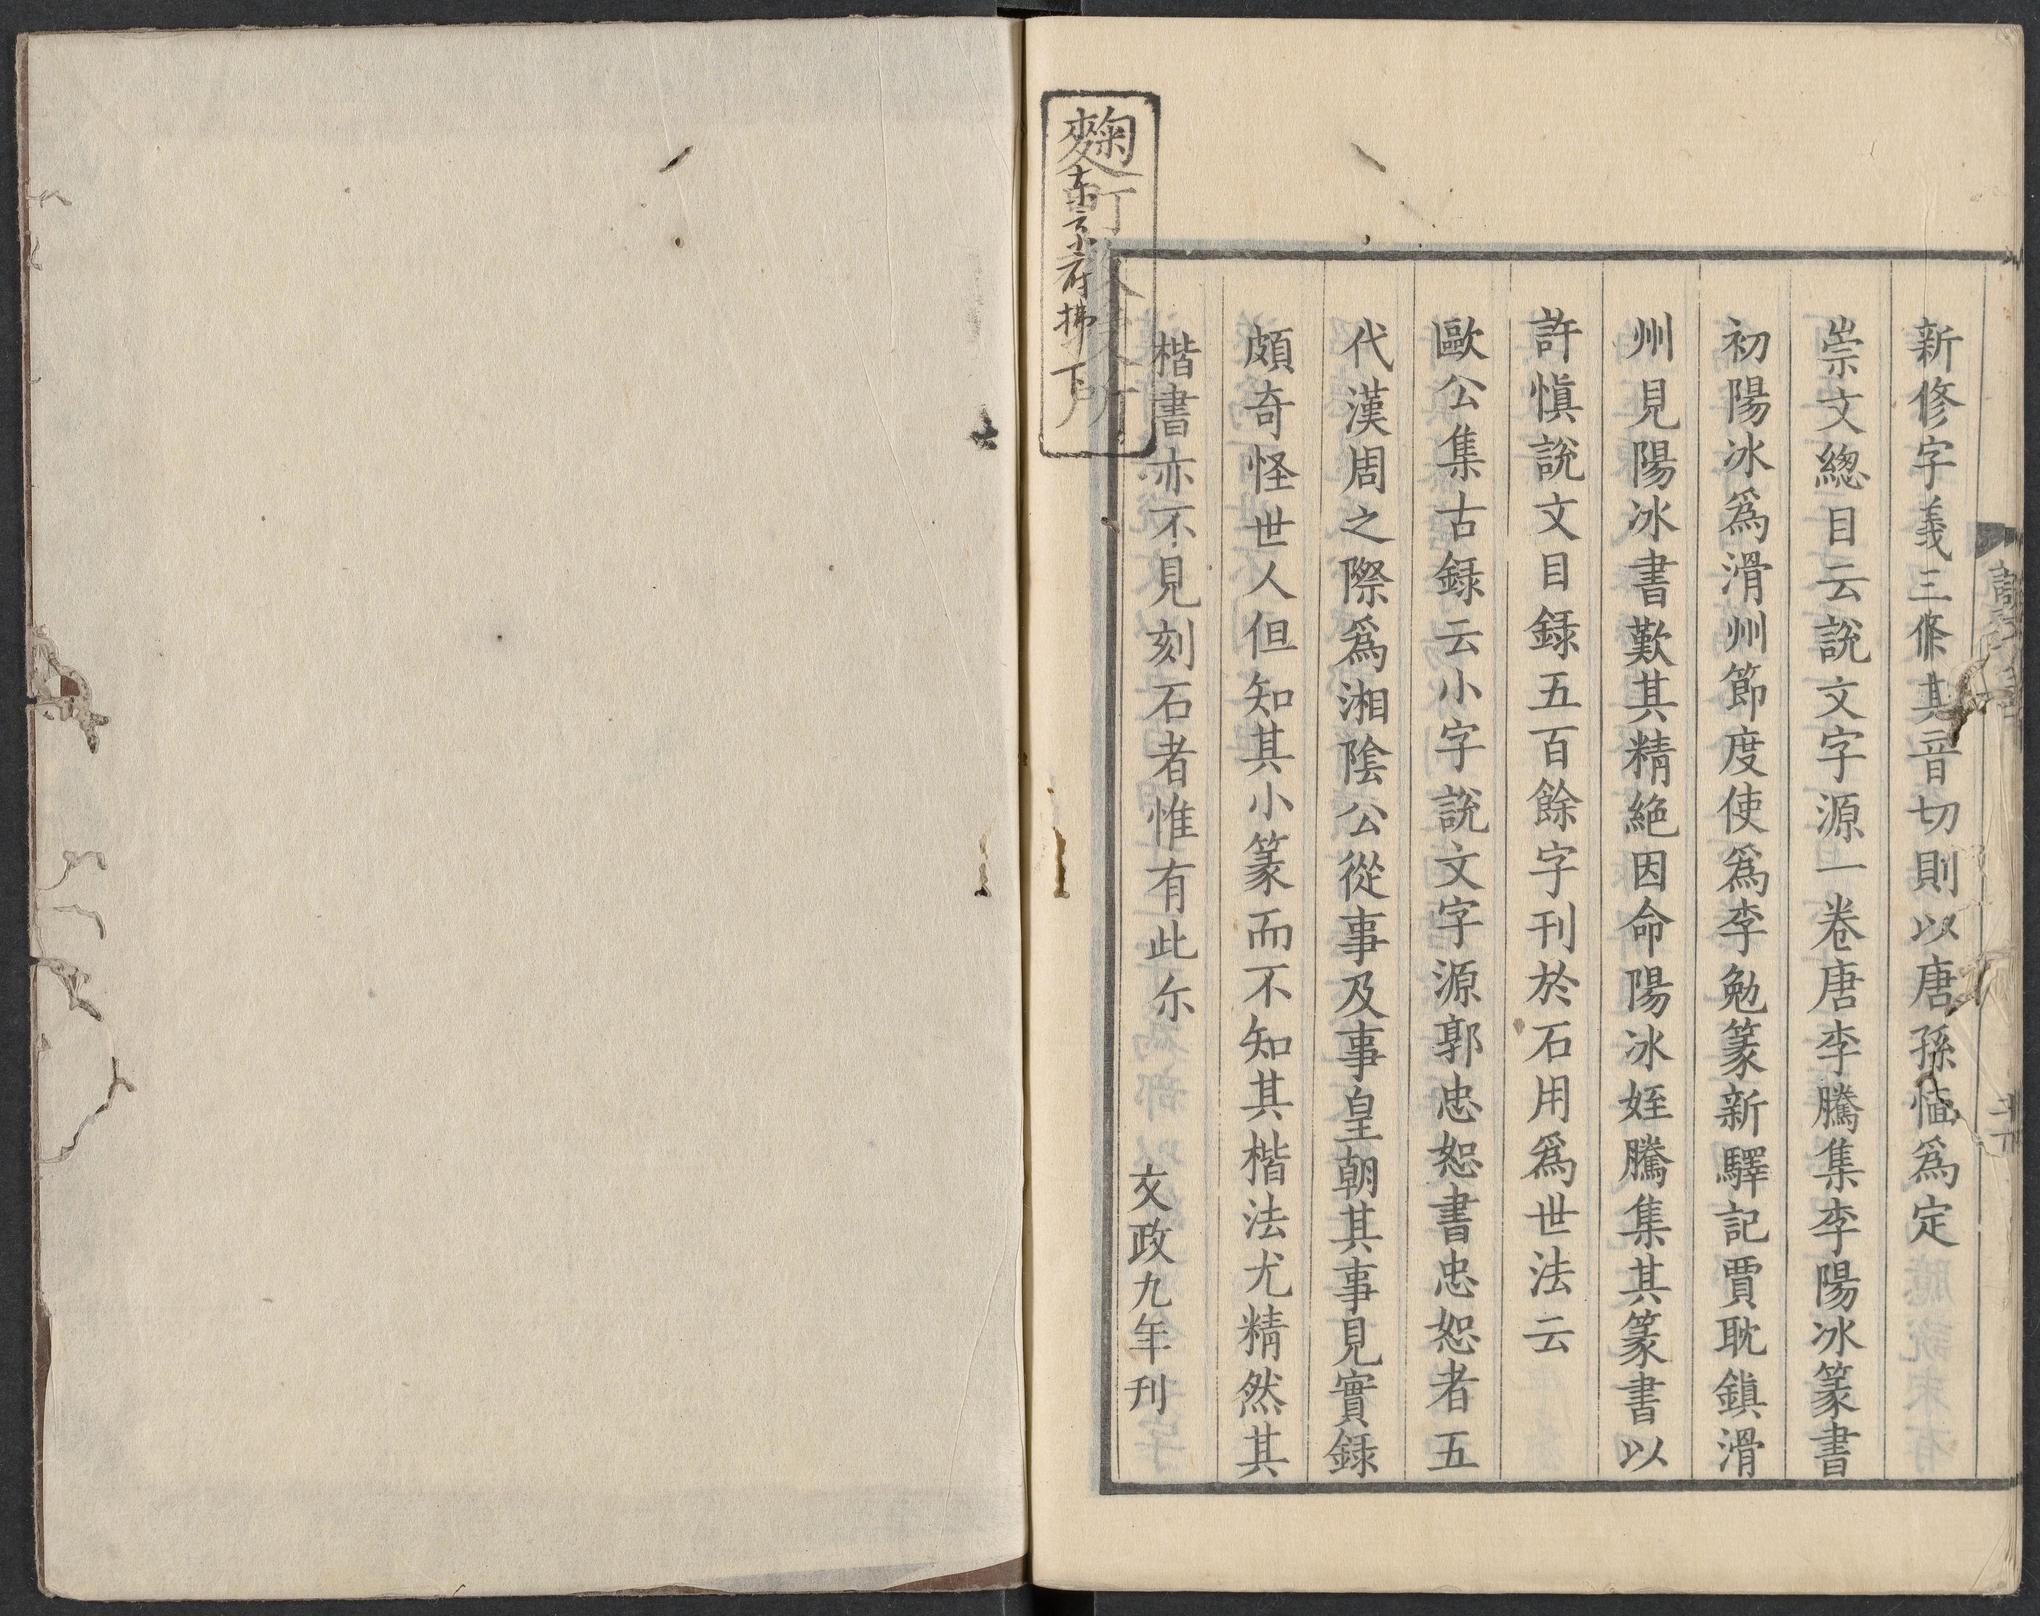 新修字義三條其音切則以唐孫愐爲定
崇文緫目云說文字源一卷唐李騰集李陽冰篆書
初陽冰爲滑州節度使爲李勉篆新驛記賈耽鎮滑
州見陽冰書歎其精絶因命陽冰姪騰集其篆書以
許愼說文目録五百餘字刊於石用爲世法云
歐公集古録云小字說文字源郭忠恕書忠恕者五
代漢周之際爲湘陰公從事及事皇朝其事見實録
頗奇怪世人但知其小篆而不知其楷法尤精然其
楷書亦不見刻石者惟有此尓
文政九年刊
麴町
拂下